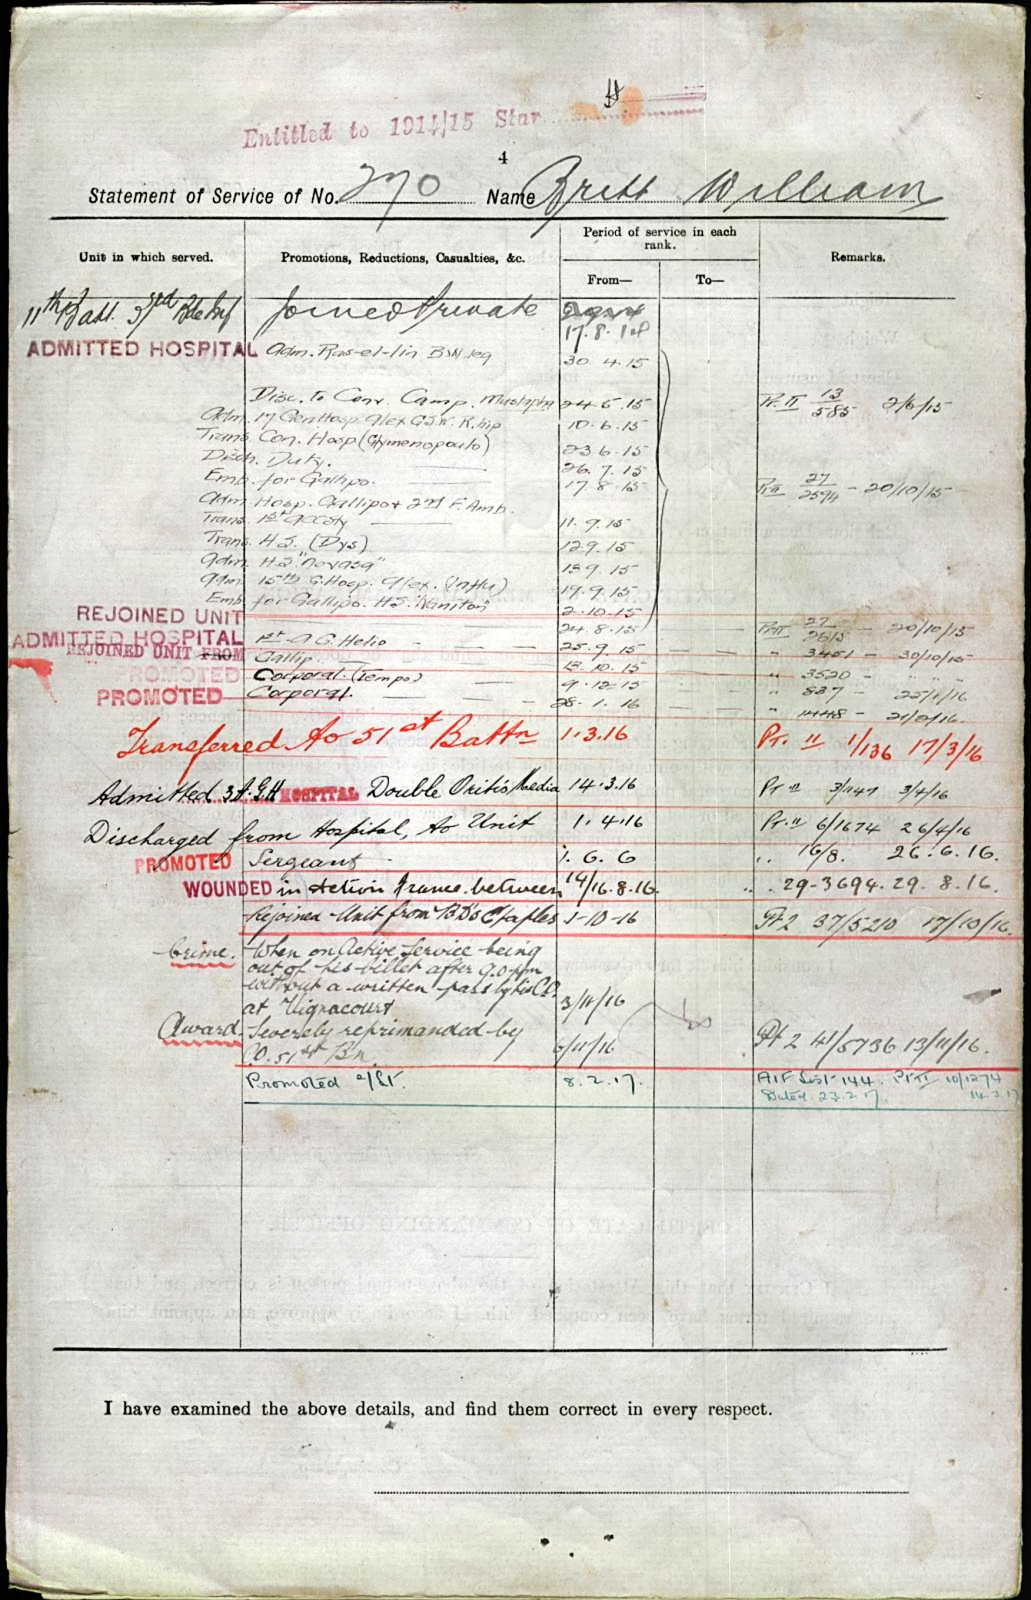 Entitled to 1914/15 Star
4
Statement of Service of No. 270 Name Britt William
Unit in which served. Promotions, Reductions, Casualties, &c. Period of service in each rank. Remarks.
From— To—
11th Batt. 3rd Bde Inf Joined Private 17.8.14
ADMITTED HOSPITAL Adm. Ras-el-tin 30.4.15
Disc. to Conv. Camp. Mustapha 24.5.15 Pt. II 13/585 2/6/15
Adm. 17 Gen Hosp. Alex G.S.W. R. hip 10.6.15
Trans. Con. Hosp (Glymenopoulo) 23.6.15
Disch. Duty. 26.7.15
Emb. for Gallipo. 17.8.15 Pt II 27/2594 - 20/10/15
Adm. Hosp. Gallipoli 2nd F. Amb.
Trans. 1st 11.9.15
Trans. H.S. (Dys) 12.9.15
Adm. H.S. "Novasa" 13.9.15
Adm. 15th G. Hosp. Alex. (Influ) 19.9.15
Emb. for Gallipo. H.S. 2.10.15
REJOINED UNIT 24.8.15 Pt II 27/2615 - 20/10/15
ADMITTED HOSPITAL 1st A.G. Helio - 25.9.15 " 3451 - 30/10/15
REJOINED UNIT FROM Gallip. 18.10.15 " 3520 - " " "
PROMOTED Corporal (Tempo) 9.12.15 " 837 - 22/1/16
PROMOTED Corporal. 28.1.16 " 1448 - 21/2/16.
Transferred to 51st Battn 1.3.16 Pt. II 1/136 17/3/16
Admitted 3 A.G.H HOSPITAL Double Otitis Media 14.3.16 Pt II 3/947 3/4/16
Discharged from Hospital, to Unit 1.4.16 Pt. II 6/1674 26/4/16
PROMOTED Sergeant 1.6.6 " 16/8. 26.6.16.
WOUNDED in Action France between 14/16.8.16. " 29-3694. 29.8.16.
Rejoined Unit from B.D's Etaples 1-10-16 Pt 2 37/5210 17/10/16.
Crime. When on Active Service being
out of his billet after 9.0 pm
without a written pass by his C.O.
at Vignacourt 3/11/16
Award. Severely reprimanded by
C.O. 51st Bn. 6/11/16 Pt 2 41/5736 13/11/16.
Promoted 2/Lt. 8.2.17. AIF List 144. Pt II 10/1274
Dated 23.2.17. 14.3.17
I have examined the above details, and find them correct in every respect.